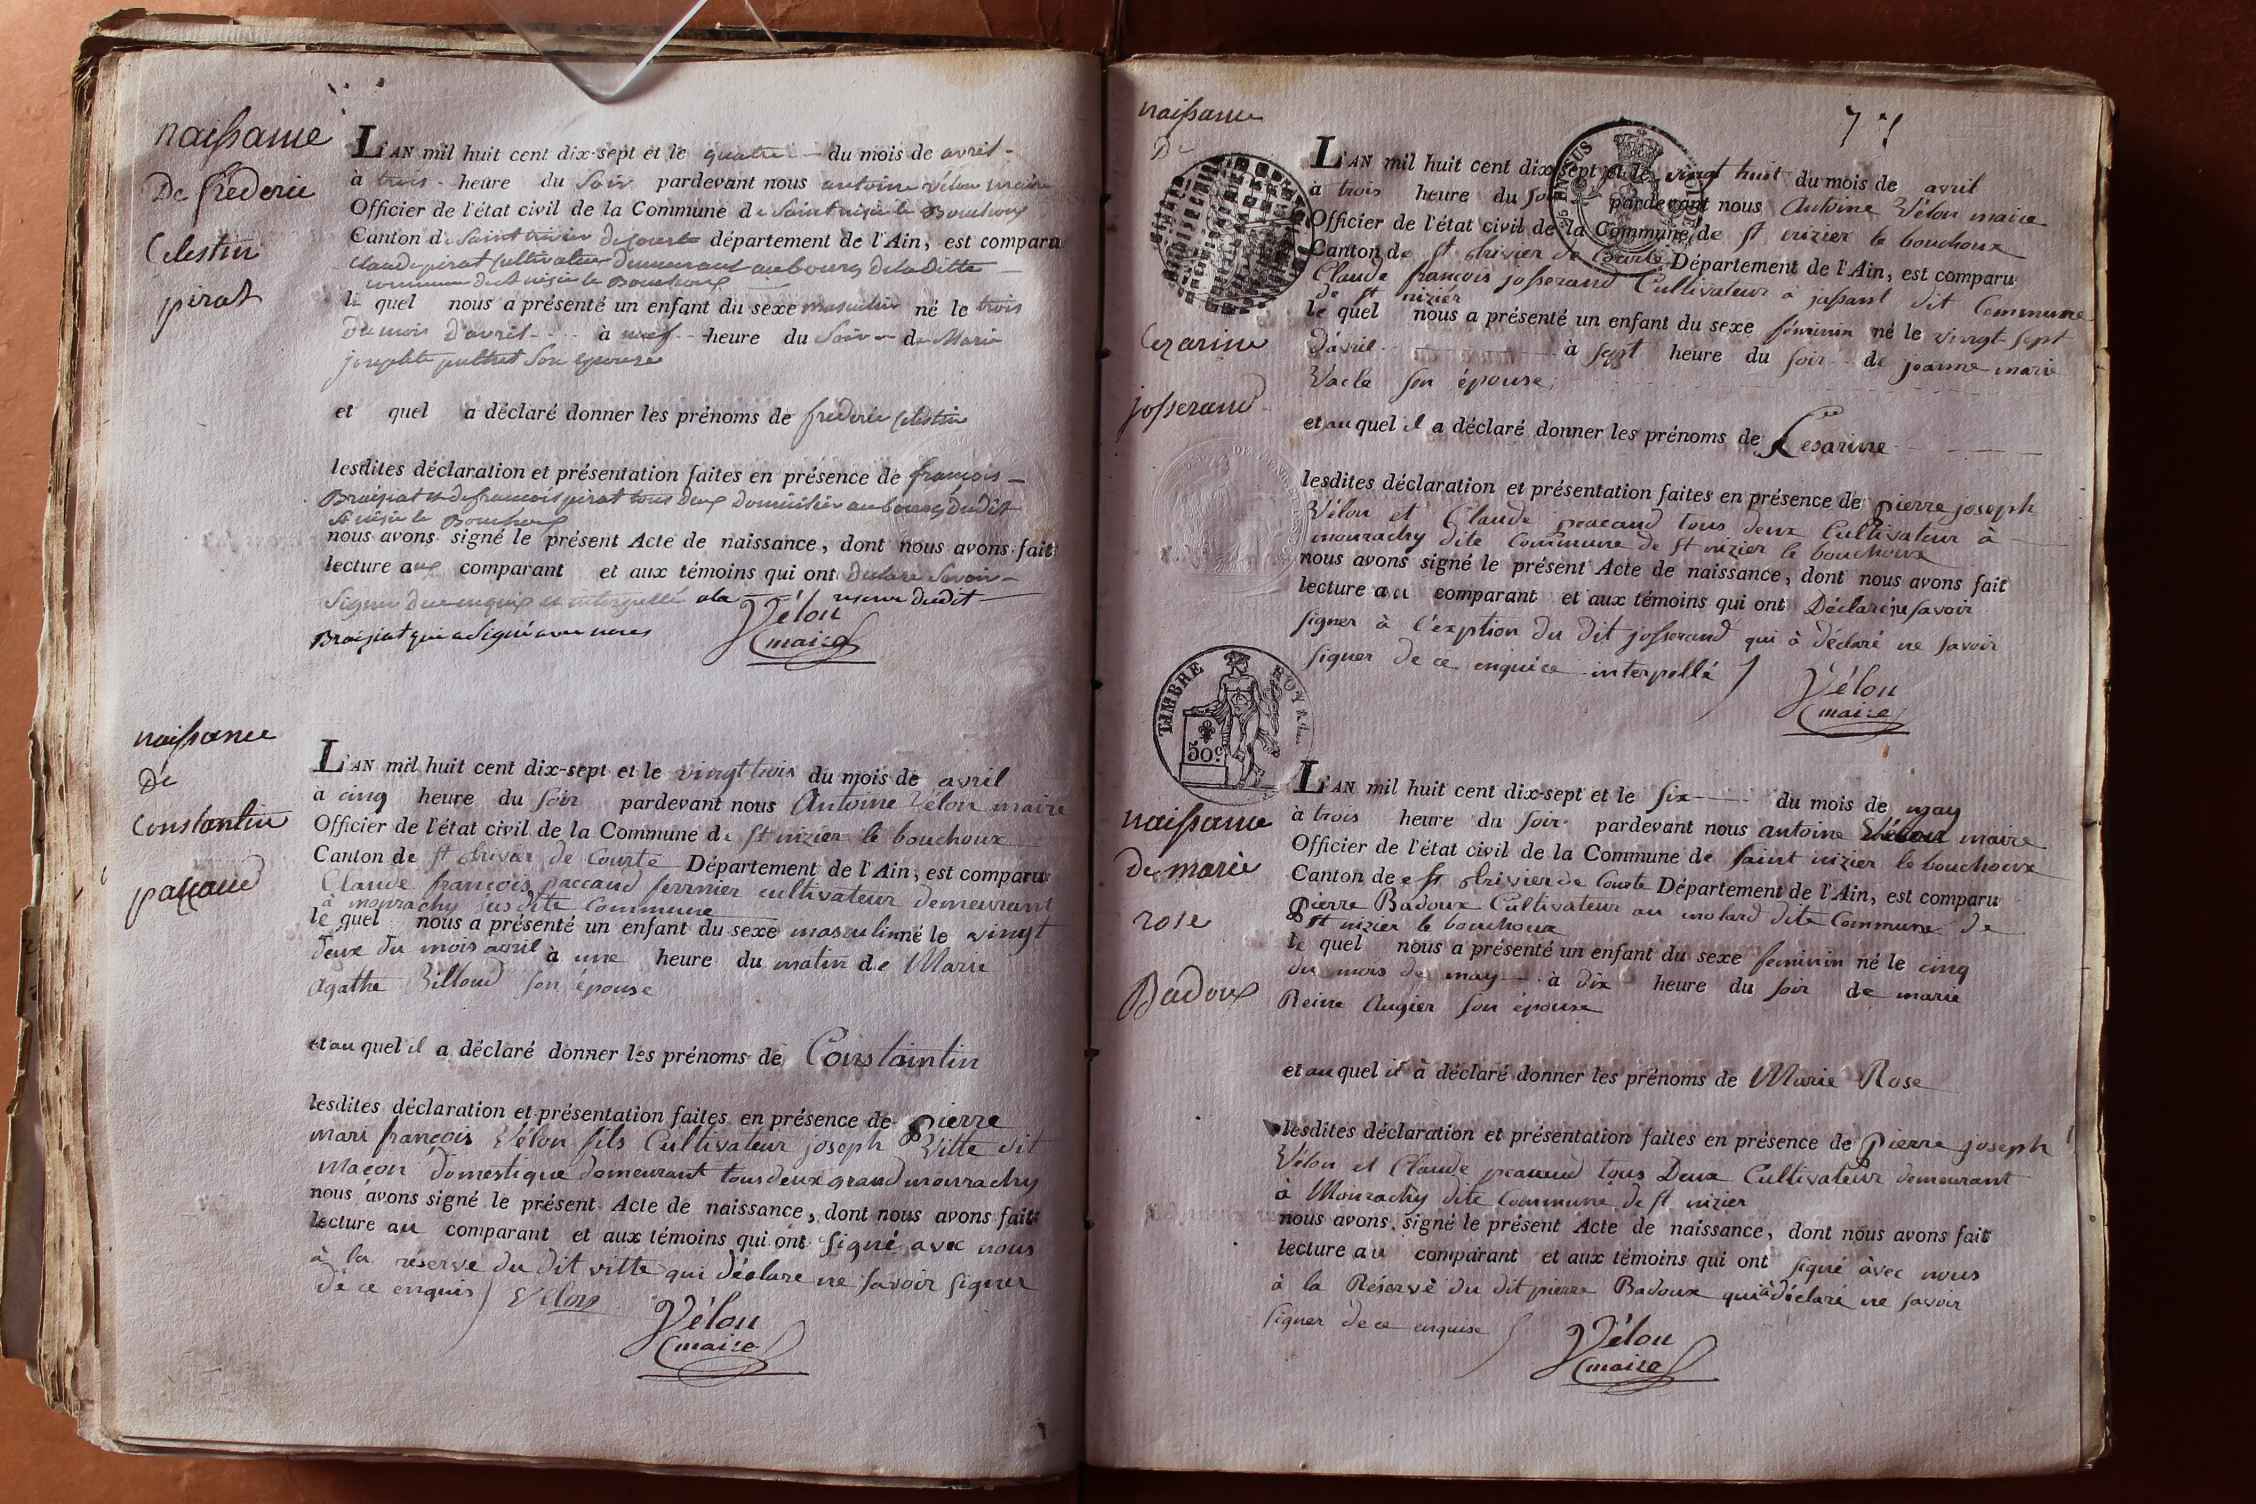 naissance
De frederic
Celestin
pirat
L'AN mil huit cent dix-sept et le quatre du mois de avril
à trois heure du soir pardevant nous antoine vélon maire
Officier de l'état civil de la Commune de Saint nisie le Bouchoux
Canton de Saint trivier de Courte département de l'Ain, est comparu
Claude pirat Cultivateur demeurant au bourg de la Ditte
commune de St nisie le Bouchoux
le quel nous a présenté un enfant du sexe masculin né le trois
du mois d'avril à neuf heure du Soir de Marie
josephte son épouse
et quel a déclaré donner les prénoms de frederic Celestin
lesdites déclaration et présentation faites en présence de françois
et de françois pirat tous deux domiciliés au bourg dudit
St nisie le Bouchoux
nous avons signé le présent Acte de naissance, dont nous avons fait
lecture aux comparant et aux témoins qui ont declaré Savoir
Signer de ce enquis et interpellé a la reserve dudit
qui a Signé avec nous
Vélon
maire
naissance
de
Constantin
paccaud
L'AN mil huit cent dix-sept et le vingt trois du mois de avril
a cinq heure du soir pardevant nous Antoine Vélon maire
Officier de l'état civil de la Commune de st nizier le bouchoux
Canton de st trivier de Courte Département de l'Ain, est comparu
Claude françois paccaud fermier cultivateur demeurant
à mourachy susdite commune
le quel nous a présenté un enfant du sexe masculin né le vingt
deux du mois avril à une heure du matin de Marie
Agathe Billoud son épouse
et au quel il a déclaré donner les prénoms de Constaintin
lesdites déclaration et présentation faites en présence de pierre
mari françois Vélon fils Cultivateur joseph Vitte dit
Maçon domestique demeurant tous deux grand mourachy
nous avons signé le présent Acte de naissance, dont nous avons fait
lecture au comparant et aux témoins qui ont signé avec nous
à la réserve du dit vitte qui déclare ne savoir signer
de ce enquis Velon
Vélon
maire
naissance
De
Cezarine
josserand
L'AN mil huit cent dix-sept et le vingt huit du mois de avril
à trois heure du soir pardevant nous Antoine Vélon maire
Officier de l'état civil de la Commune de st nizier le bouchoux
Canton de st trivier de Courte Département de l'Ain, est comparu
Claude françois josserand Cultivateur à jassant dit Commune
de st nizier
le quel nous a présenté un enfant du sexe féminin né le vingt sept
d'avril à sept heure du soir de joanne marie
Vacle son épouse
et au quel il a déclaré donner les prénoms de Cesarine
lesdites déclaration et présentation faites en présence de pierre joseph
Vélon et Claude peacaud tous deux Cultivateur à
mourachy dite Commune de st nizier le bouchoux
nous avons signé le présent Acte de naissance, dont nous avons fait
lecture au comparant et aux témoins qui ont Déclaré savoir
signer à l'exption du dit josserand qui à déclaré ne savoir
signer de ce enquice interpellé
Vélon
maire
TIMBRE ROYAL
50c
naissance
de marie
rose
Badoux
L'AN mil huit cent dix-sept et le six du mois de may
à trois heure du soir pardevant nous antoine Vélon maire
Officier de l'état civil de la Commune de saint nizier le bouchoux
Canton de st trivier de Courte Département de l'Ain, est comparu
pierre Badoux Cultivateur au molard dite Commune de
st nizier le bouchoux
le quel nous a présenté un enfant du sexe feminin né le cinq
du mois de may à dix heure du soir de marie
Reine Augier son épouse
et au quel il à déclaré donner les prénoms de Marie Rose
lesdites déclaration et présentation faites en présence de pierre joseph
Vélon et Claude peacaud tous Deux Cultivateur demeurant
à Mourachy dite Commune de st nizier
nous avons signé le présent Acte de naissance, dont nous avons fait
lecture au comparant et aux témoins qui ont signé avec nous
à la Réserve du dit pierre Badoux qui à déclaré ne savoir
signer de ce enquise
Vélon
maire